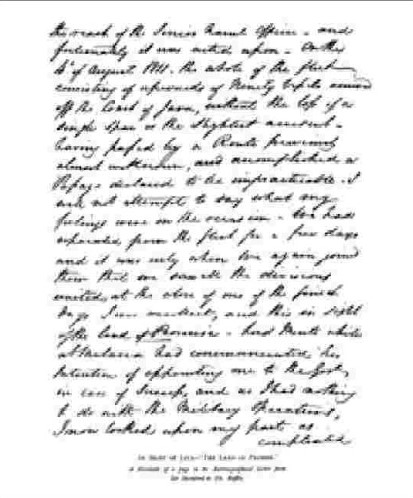 the reach of the Senior Naval Officer - and
fortunately it was acted upon - On the
4th of August 1811. the whole of the fleet
consisting of upwards of Ninety Sail
off the Coast of Java, without the loss of a
single Spar or the slightest accident -
having passed by a Route previously
almost unknown, and accomplished a
Passage declared to be impracticable. I
will not attempt to say what my
feelings were on the occasion - We had
separated from the fleet for a few days
and it was only when we again joined
them that we saw all the divisions
united, at the close of one of the finest
days I ever, and this in sight
of the land of Promise - Lord Minto while
at Malacca had communicated his
Intention of appointing me to the Govt,
in case of Success, and as I had nothing
to do with the Military Operations,
I now looked upon my part as
completed
IN SIGHT OF JAVA—"THE LAND OF PROMISE."
A Facsimile of a page in the Autobiographical Letter from
Sir Stamford to Dr. Raffles.